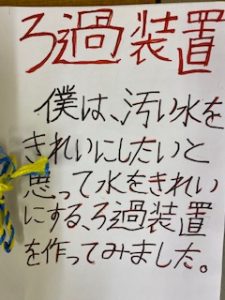 ろ過装置
僕は、汚い水を
きれいにしたいと
思って水をきれい
にする、ろ過装置
を作ってみました。